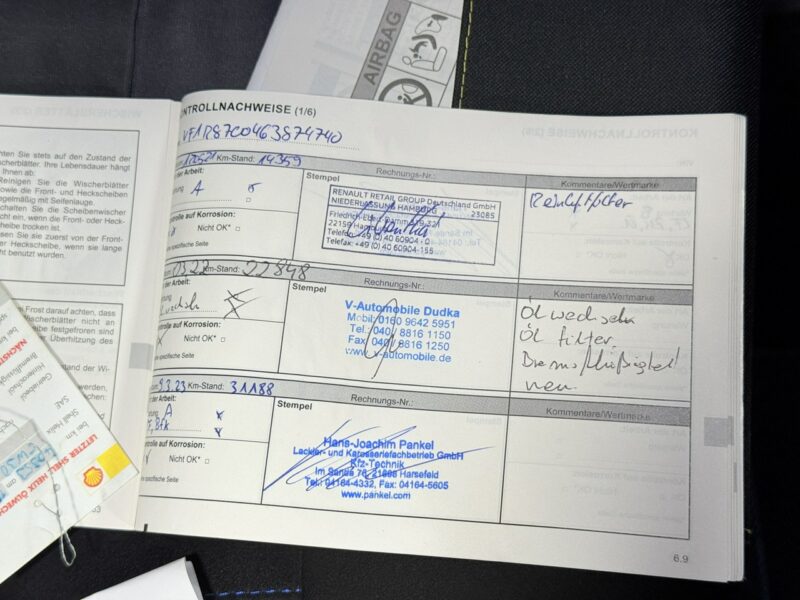 AIRBAG
hten Sie stets auf den Zustand der
cherblätter. Ihre Lebensdauer hängt
Ihnen ab:
Reinigen Sie die Wischerblätter
sowie die Front- und Heckscheiben
regelmäßig mit Seifenlauge.
schalten Sie die Scheibenwischer
nicht ein, wenn die Front- oder Heck-
scheibe trocken ist.
sen Sie sie zuerst von der Front-
Heckscheibe, wenn sie lange
cht benutzt wurden.
Frost darauf achten, dass
Wischerblätter nicht an
eibe festgefroren sind
Überhitzung des
ustand der Wi-
werden,
LETZTER SHELL HELIX ÖLWECH
NÄCHST
bei km
Shell Helix
SAE
ONTROLLNACHWEISE (1/6)
VF1R87C0463874740
Km-Stand: 14359
der Arbeit:
A
ntrolle auf Korrosion:
Nicht OK*
e spezifische Seite
Stempel
Rechnungs-Nr.:
Kommentare/Wertmarke
RENAULT RETAIL GROUP Deutschland GmbH
NIEDERLASSUNG HAMBURG 23085
Friedrich-Ebert-Damm
22159 Hamburg
Telefon: +49 (0) 40 60904 - 0
Telefax: +49 (0) 40 60904-155
03.22 Km-Stand: 22848
der Arbeit:
ntrolle auf Korrosion:
Nicht OK*
e spezifische Seite
Stempel
Rechnungs-Nr.:
Kommentare/Wertmarke
V-Automobile Dudka
Mobil: 0160 9642 5951
Tel. 040/ 8816 1150
Fax 040/ 8816 1250
www.v-automobile.de
Öl wechseln
Öl filter
Bremsflüßigkeit
neu.
9.3.23 Km-Stand: 31188
der Arbeit:
A
ntrolle auf Korrosion:
Nicht OK*
e spezifische Seite
Stempel
Rechnungs-Nr.:
Kommentare/Wertmarke
Hans-Joachim Pankel
Lackier- und Karosseriefachbetrieb GmbH
Kfz-Technik
Im Sande 76, 21698 Harsefeld
Tel.: 04164-4332, Fax: 04164-5605
www.pankel.com
6.9